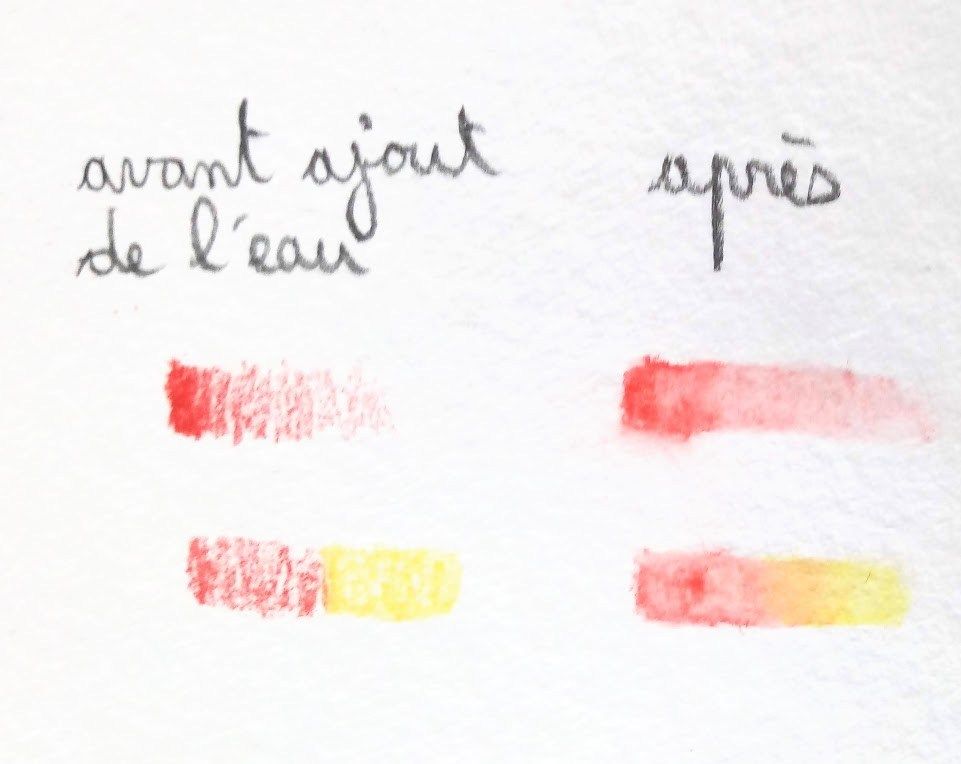 avant ajout
de l'eau
après